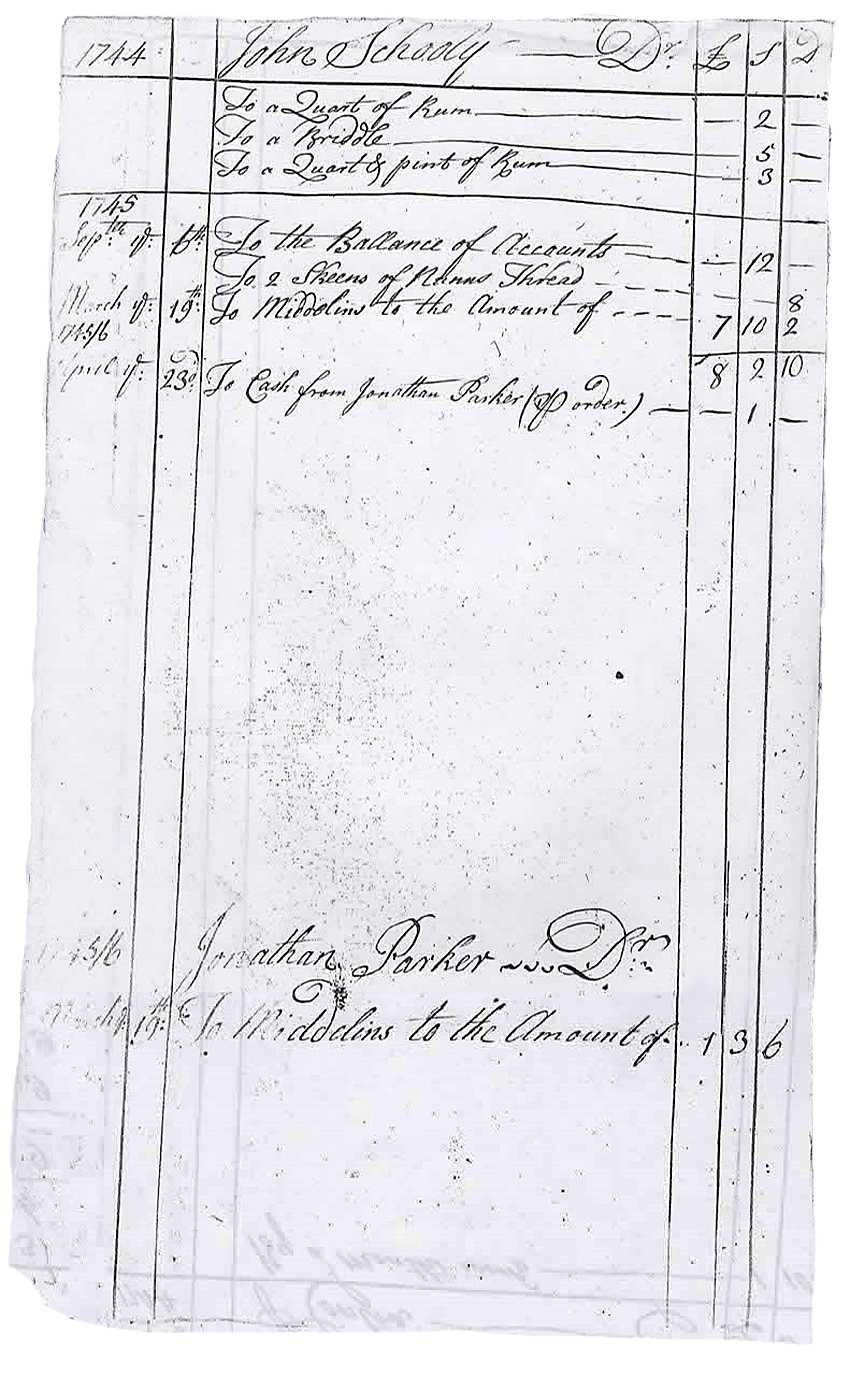 1744 John Schooly Dr. £ S D
To a Quart of Rum — 2 —
To a Briddle — 5 —
To a Quart & pint of Rum — 3
1745
Septbr. ye. 6th. To the Ballance of Accounts — 12 —
To 2 Skeens of Nunns Thread 8
March ye. 19th. To Middelins to the Amount of 7 10 2
1745/6
8 2 10
April ye. 23d. To Cash from Jonathan Parker (P order.) — — 1 —
5/6 Jonathan Parker Dr.
March ye. 19th. To Middelins to the Amount of 1 3 6